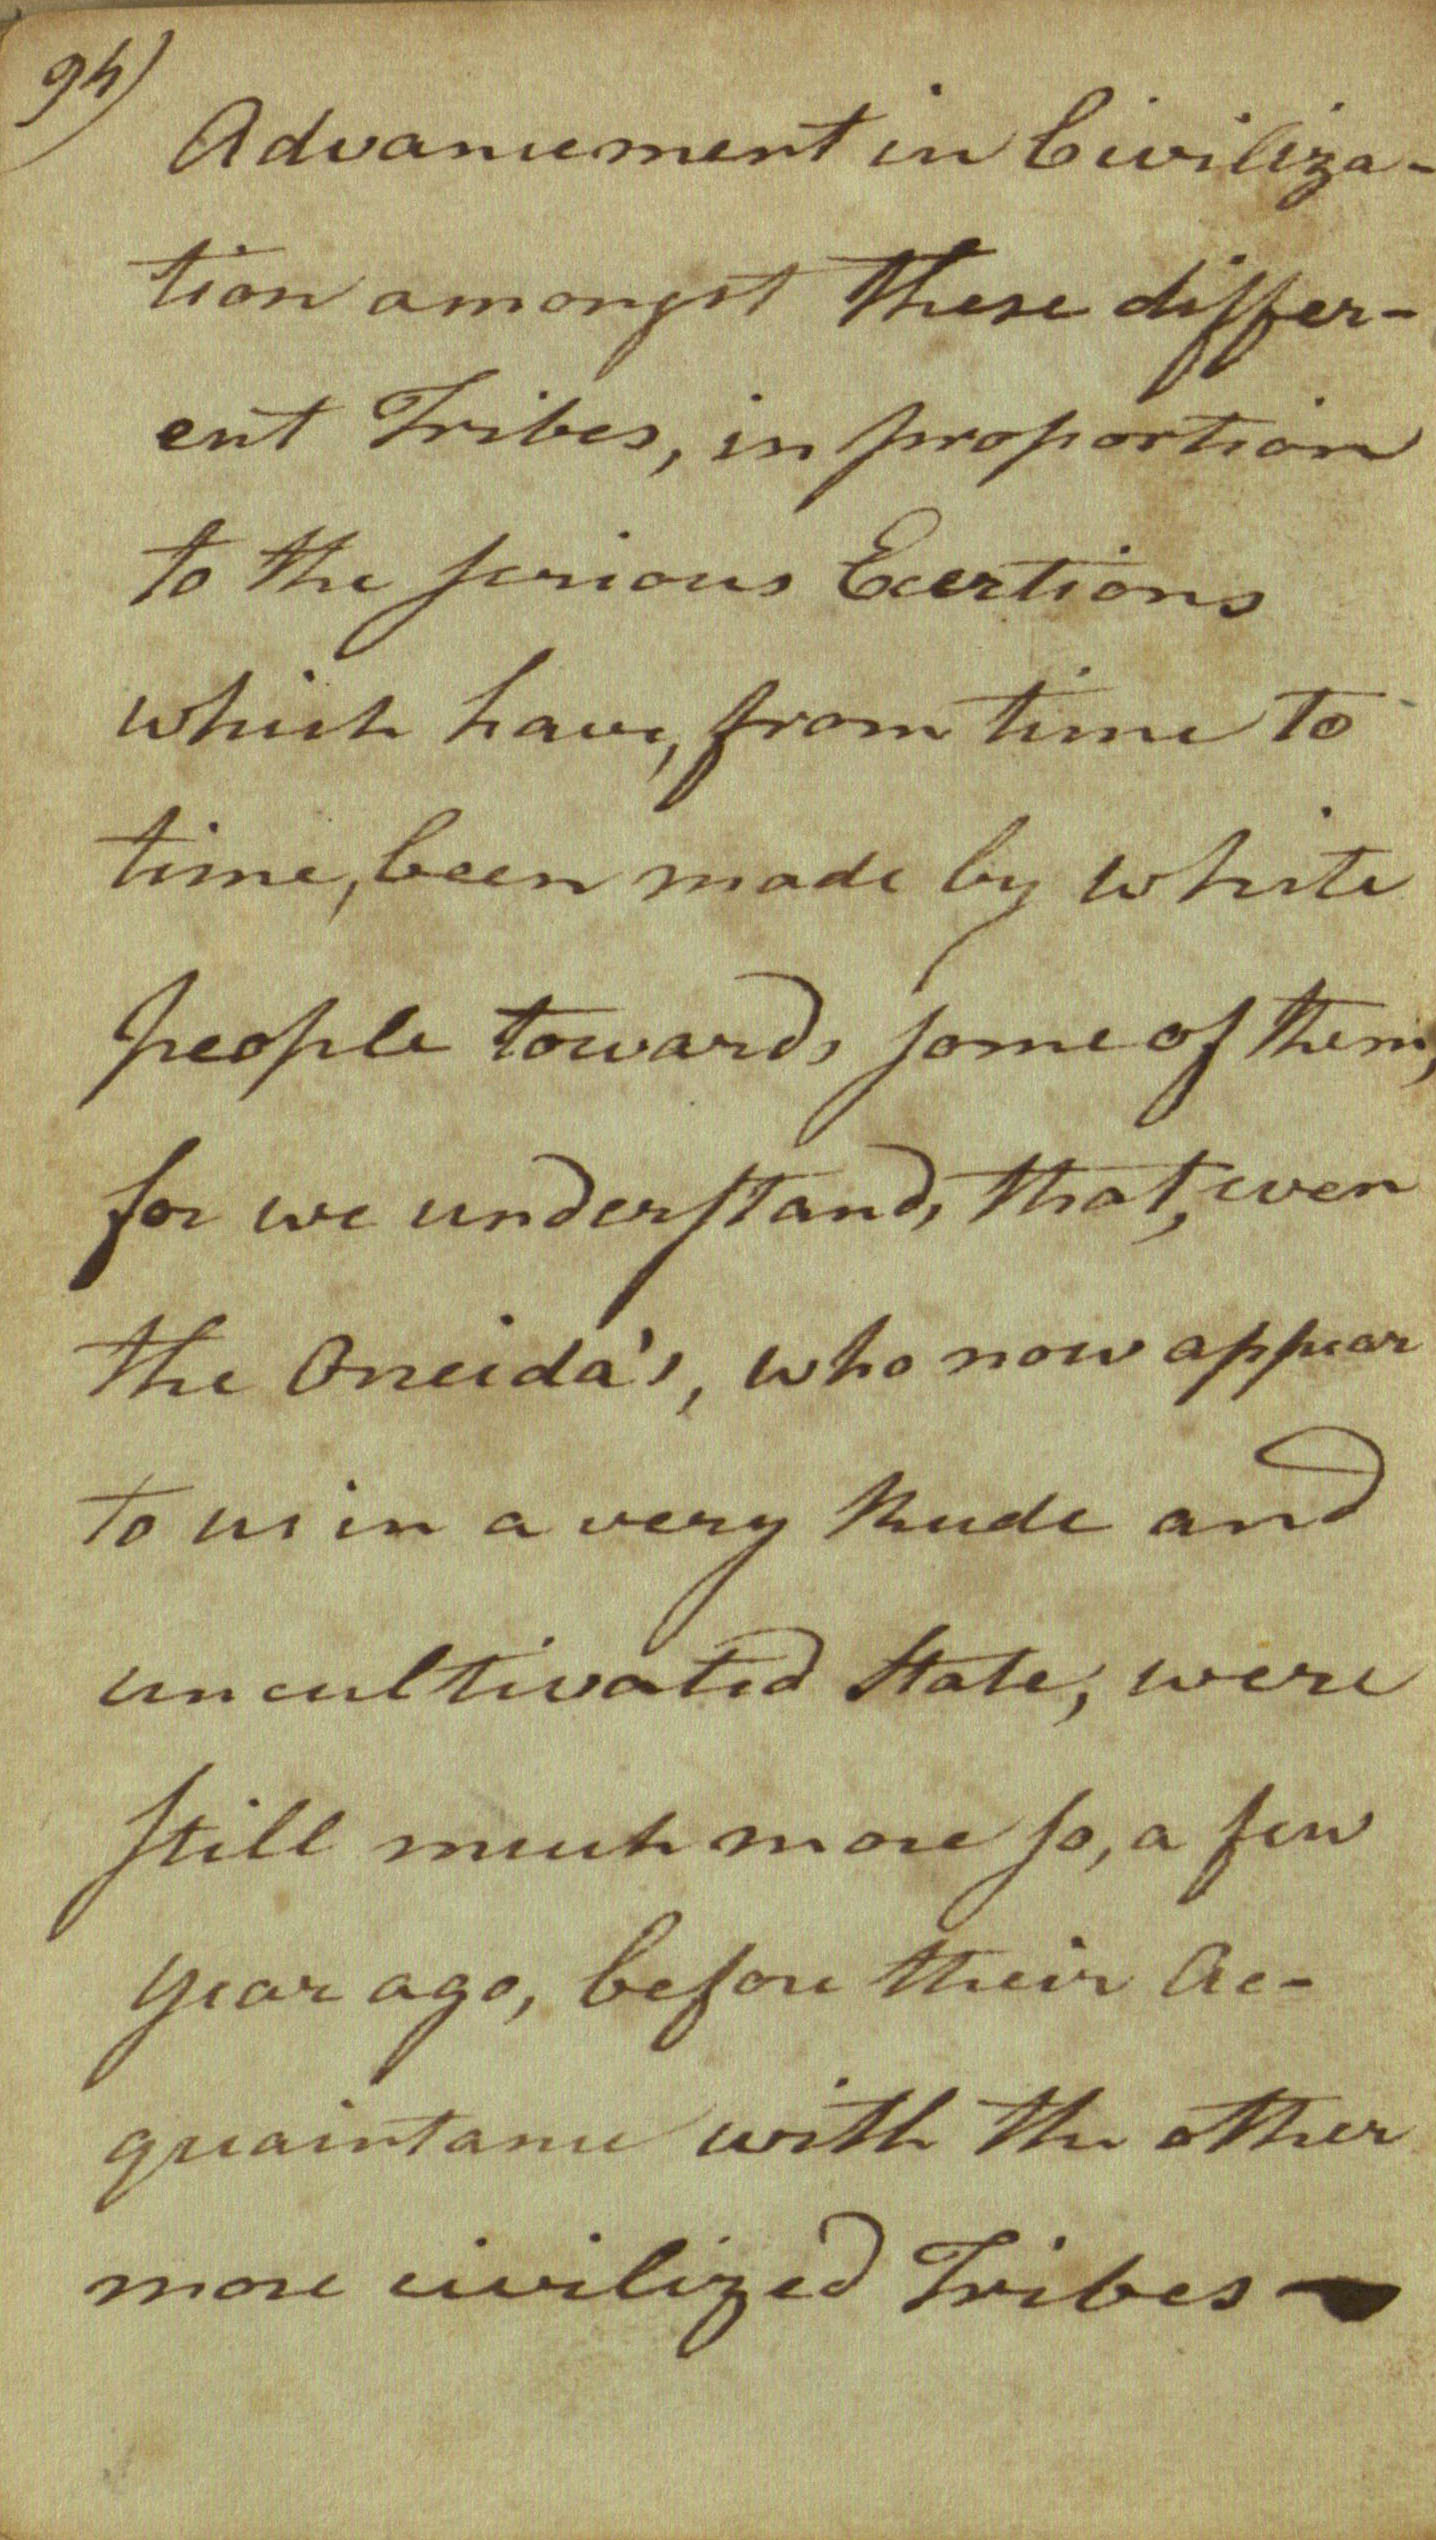 94)
Advancement in Civiliza-
tion amongst these differ-
ent Tribes, in proportion
to the serious Exertions
which have, from time to
time, been made by white
people towards some of them,
for we understand, that, even
the Oneida's, who now appear
to us in a very Rude and
uncultivated State, were
still much more so, a few
year ago, before their Ac-
quaintance with the other
more civilized Tribes —